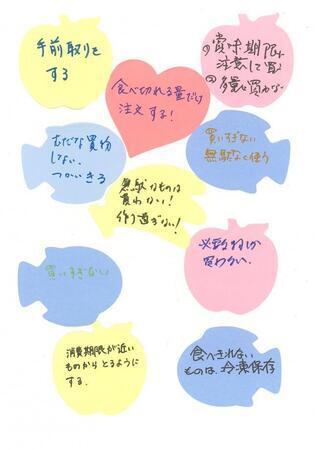 手前取りを
する
食べ切れる量だけ
注文する！
の賞味期限
注意して買
の多量に買わない
むだな買物
しない。
つかいきる
買いすぎない
無駄なく使う
無駄なものは
買わない！
作り過ぎない！
必要なものしか
買わない。
買いすぎない
消費期限が近い
ものからとるように
する。
食べきれない
ものは、冷凍保存